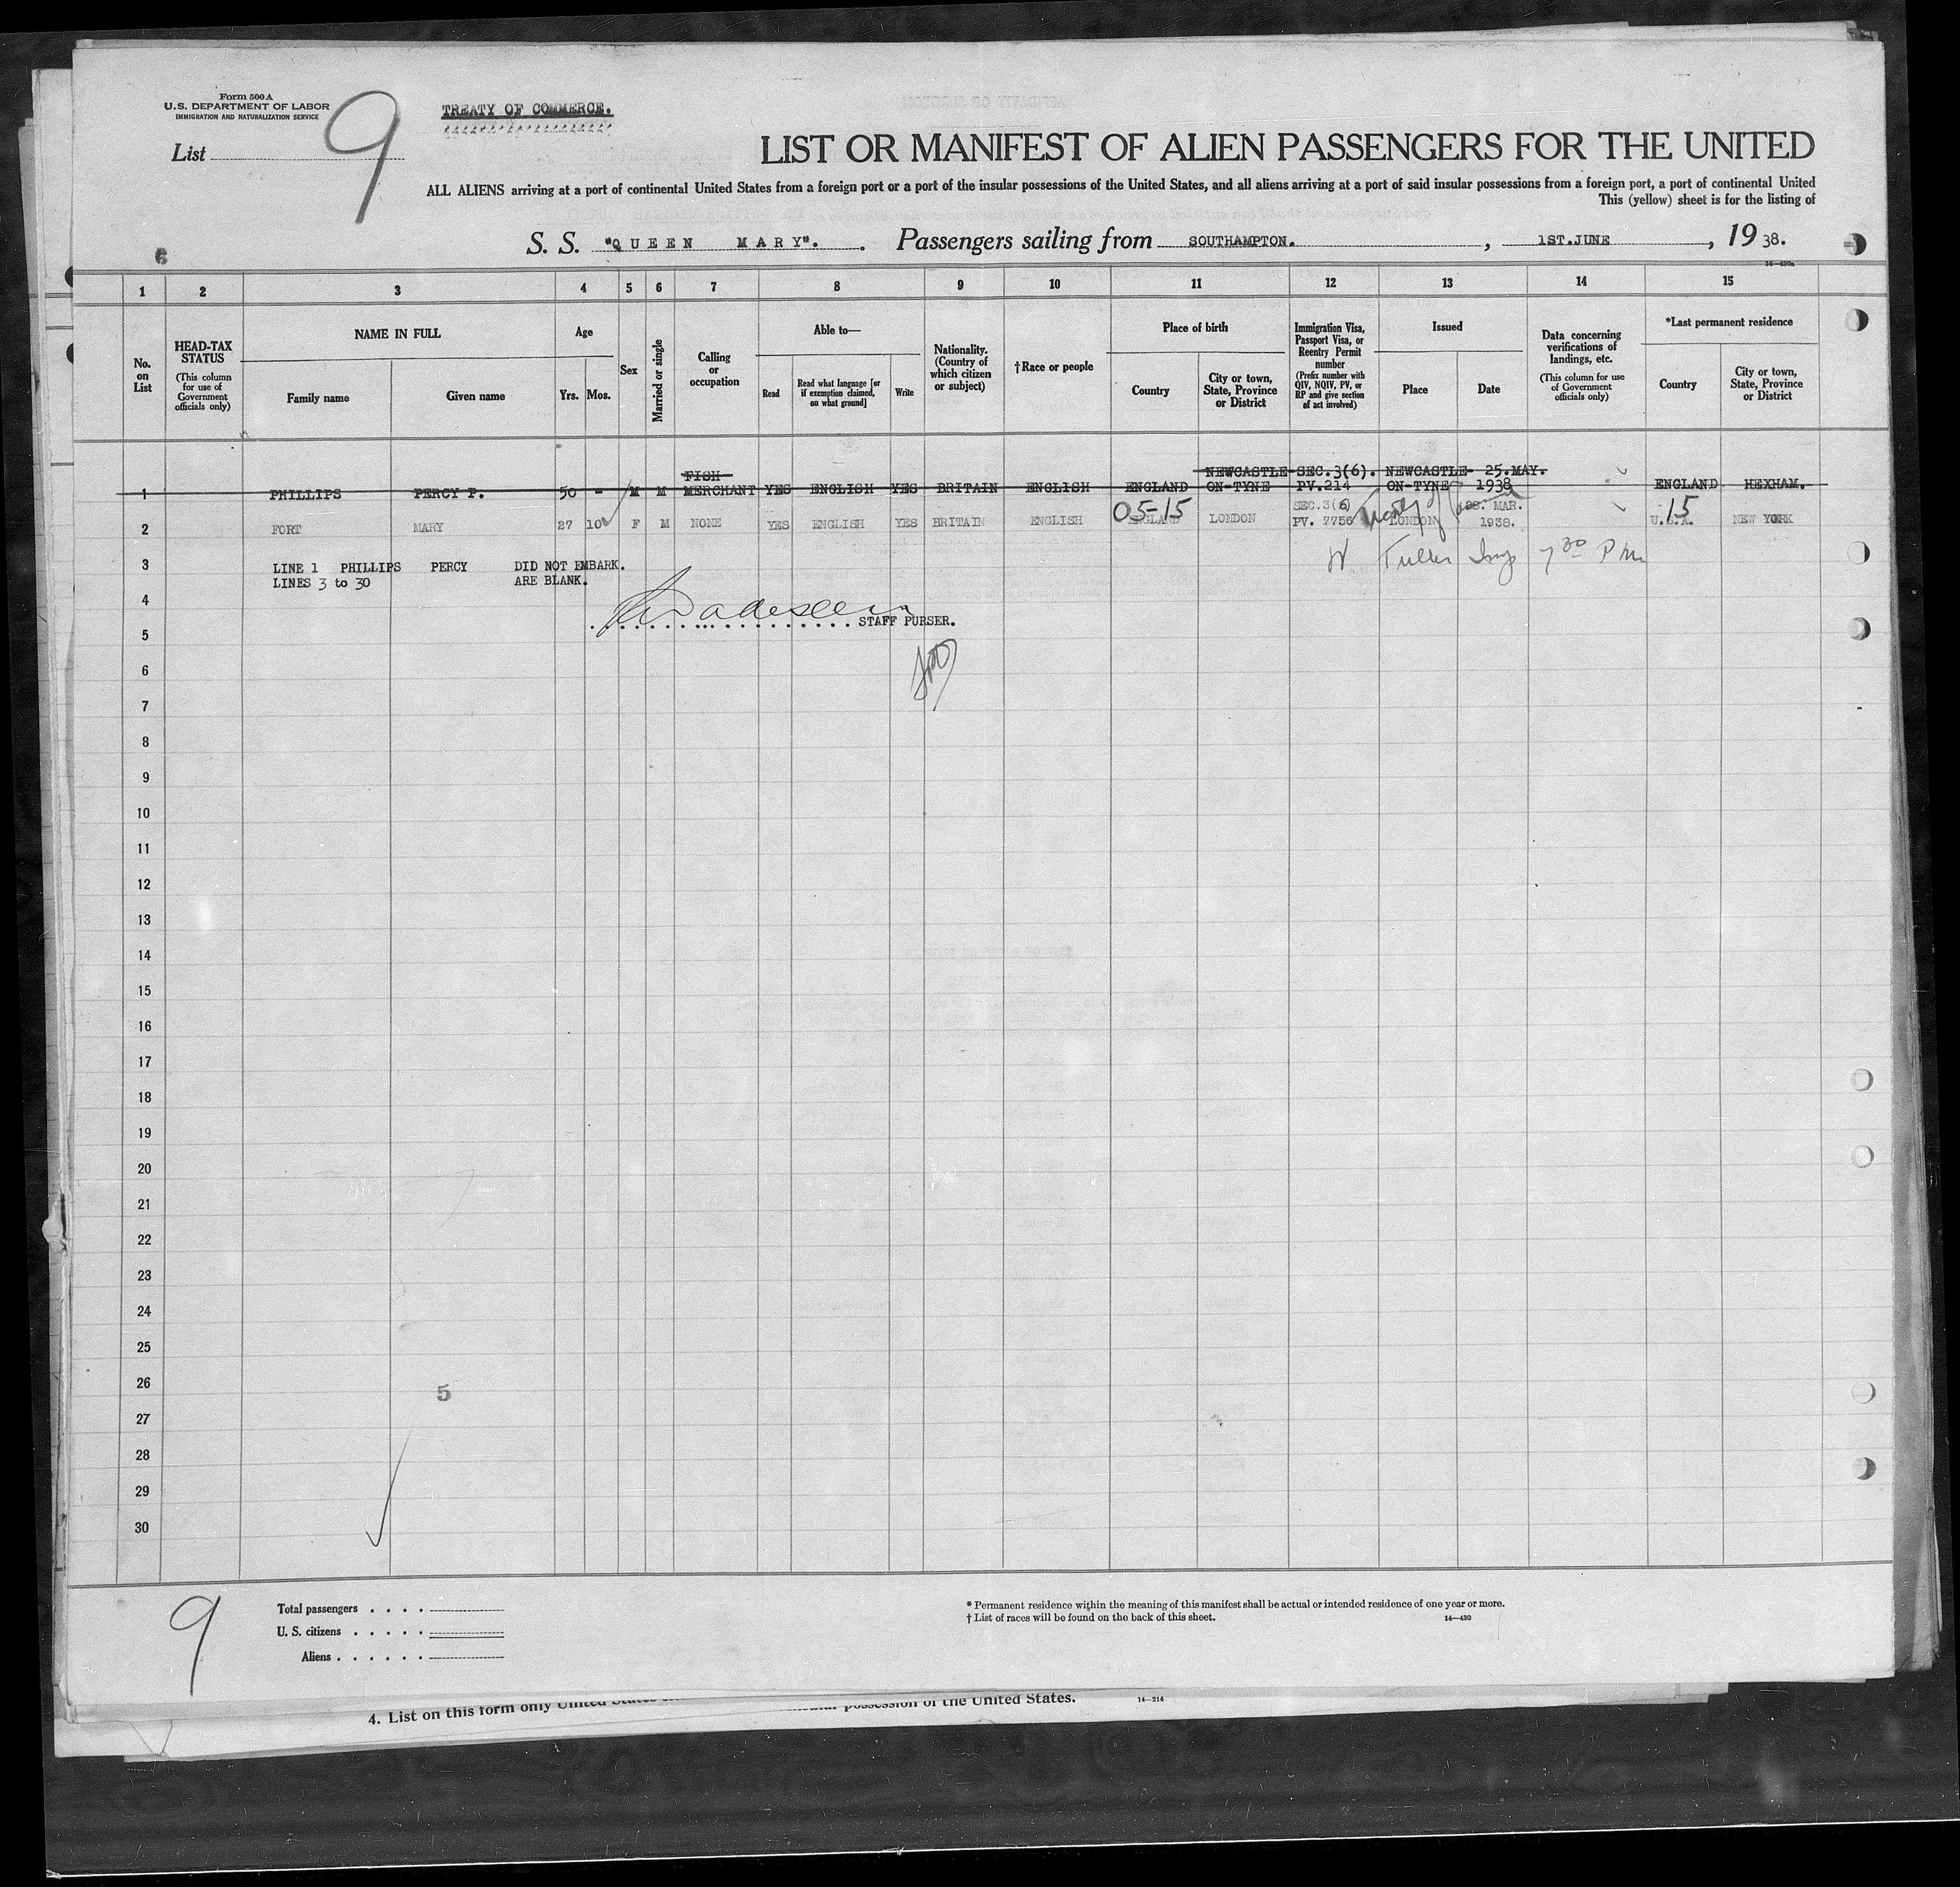 Form 500 A
U.S. DEPARTMENT OF LABOR
IMMIGRATION AND NATURALIZATION SERVICE
List 9
TREATY OF COMMERCE.
LIST OR MANIFEST OF ALIEN PASSENGERS FOR THE UNITED
ALL ALIENS arriving at a port of continental United States from a foreign port or a port of the insular possessions of the United States, and all aliens arriving at a port of said insular possessions from a foreign port, a port of continental United
This (yellow) sheet is for the listing of
S. S. "QUEEN MARY". Passengers sailing from SOUTHAMPTON. , 1ST.JUNE , 19 38.
1 2 3 4 5 6 7 8 9 10 11 12 13 14 15
No. on List
HEAD-TAX STATUS
(This column for use of Government officials only)
NAME IN FULL
Family name
Given name
Age
Yrs. Mos.
Sex
Married or single
Calling or occupation
Able to—
Read
Read what language [or if exemption claimed, on what ground]
Write
Nationality. (Country of which citizen or subject)
†Race or people
Place of birth
Country
City or town, State, Province or District
Immigration Visa, Passport Visa, or Reentry Permit number
(Prefix number with QIV, NQIV, PV, or RP and give section of act involved)
Issued
Place
Date
Data concerning verifications of landings, etc.
(This column for use of Government officials only)
*Last permanent residence
Country
City or town, State, Province or District
FISH NEWCASTLE- SEC.3(6). NEWCASTLE- 25.MAY.
1 PHILLIPS PERCY P. 50 - M M MERCHANT YES ENGLISH YES BRITAIN ENGLISH ENGLAND ON-TYNE PV.214 ON-TYNE 1938 ENGLAND HEXHAM.
05-15 SEC.3(6) MAR. 15
2 FORT MARY 27 10 F M NONE YES ENGLISH YES BRITAIN ENGLISH ENGLAND LONDON PV. 7756 LONDON 1938. U.S.A. NEW YORK
3 LINE 1 PHILLIPS PERCY DID NOT EMBARK.
LINES 3 to 30 ARE BLANK.
Tuller Insp 7 30 P M
4
STAFF PURSER.
5
6
7
8
9
10
11
12
13
14
15
16
17
18
19
20
21
22
23
24
25
26
5
27
28
29
30
9
Total passengers . . . .
U. S. citizens . . . . .
Aliens . . . . . .
* Permanent residence within the meaning of this manifest shall be actual or intended residence of one year or more.
† List of races will be found on the back of this sheet.
14—430
4. List on this form only United States
possession of the United States.
14—214